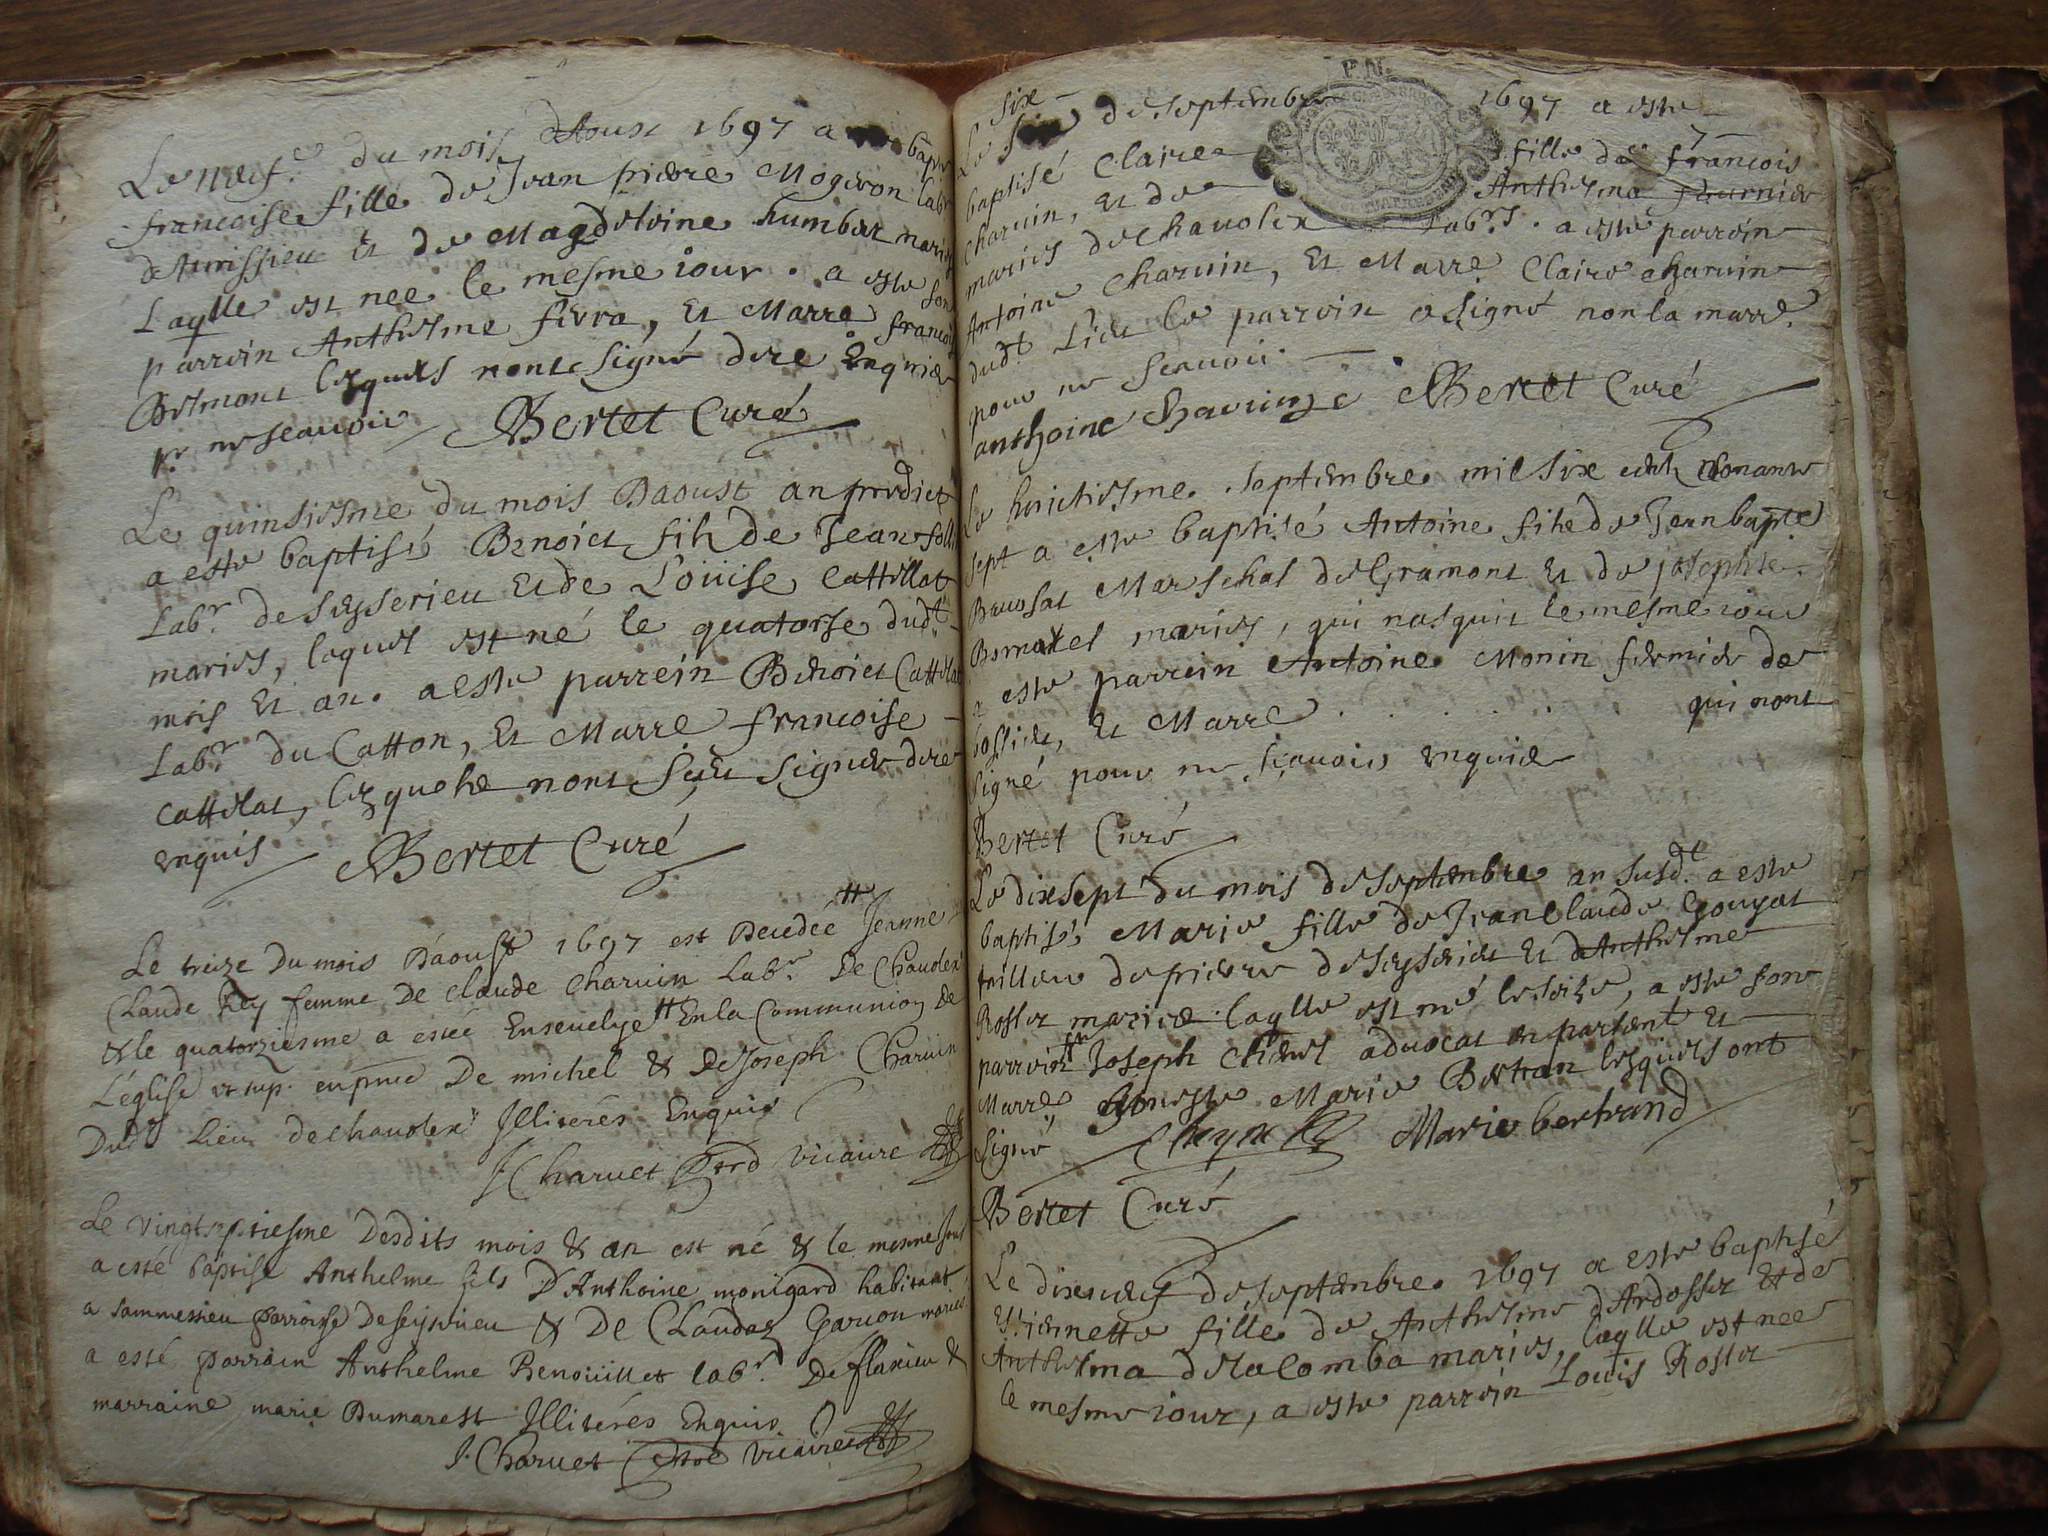 Le neuf.e du mois d'Aoust 1697 a bapt
francoise fille de Jean pierre Mogeron lab
de et de Magdeleine humber mariés
Laqlle est nee le mesme iour. a este son
parroin Anthelme fevra, et Marre francois
Belmont lesquels nont signé de ce Enquis
pr ne scauoir Bertet Curé
Le quinsiesme du mois Daoust an predict
a este baptisé Benoict fils de Jean
Labr. de Seyserieu et de Louise Cattillat
mariés, lequel est né le quatorse dudt.
mois et an. a este parrein Benoict Cattilat
Labr du Catton, et Marre francoise
Cattilat, lesquels nont sceu signer de ce
enquis Bertet Curé
Le treize du mois Daoust 1697 est Decedée Jeanne
Claude Rey femme De claude Charuin Labr. De Chauolex
& le quatorziesme a estée Enseuelye En la Communion de
L'église en De michel & de Joseph Charuin
Dudt Lieu de chauolex Illiterés Enquis
J Charuet vicaire
Le vingtseptiesme Desdits mois & an est né & le mesme jour
a esté baptise Anthelme fils D'Anthoine monigard habitant
a sammessieu parroisse De seyserieu & De Claudaz Garcon mariés
a esté parrain Anthelme Benoüillet labr. De flaxieu &
marraine marie Dumarest Illiterés Enquis
J. Charuet vicaire
six
Le de septembre 1697 a este
baptisé Claire fille de francois
Charuin, et de Anthelma fournier
mariés de chauolex Labrs. a este parroin
Antoine Charuin, et Marre Claire charuin
dudt. Lieu le parroin a signé non la marre
pour ne scauoir.
anthoine Charuin Bertet Curé
Le huictiesme septembre mil six cent nonante
sept a este baptisé Antoine fils de Jean bapte
Bruosat Mareschal de Gramont et de josephte
mariés, qui nasquit le mesme iour
a este parrein Antoine Monin fermier de
et Marre . . . . . . qui nont
signé pour ne sçauoir enquis
Bertet Curé
Le dixsept du mois de septembre an susdt. a este
baptisé Marie fille de Jean Claude Gouyat
tailleur de pierre de seyserieu et d'Anthelme
Rosset mariés laqlle est né le seize, a este son
parroin Joseph advocat en parlent et
Marre Marie Bertran lesquels ont
signé Marie bertrand
Bertet Curé
Le dixneuf de septembre 1697 a este baptisé
Estiennette fille de Anthelme d'Ardosset et de
Anthelma delacomba mariés, laqlle est nee
le mesme iour, a este parroin Louis Rosset